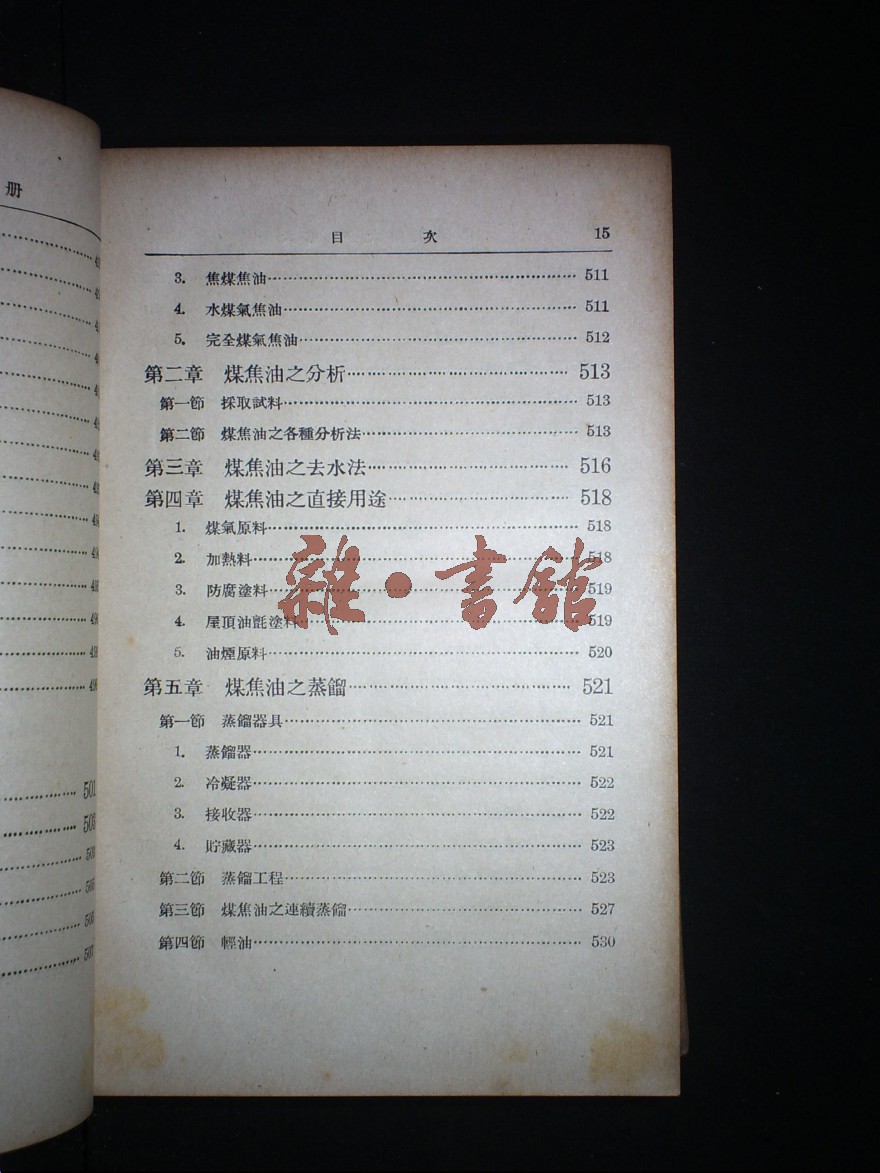 册
501
503
503
505
506
507
目 次 15
3. 焦煤焦油 511
4. 水煤氣焦油 511
5. 完全煤氣焦油 512
第二章 煤焦油之分析 513
第一節 採取試料 513
第二節 煤焦油之各種分析法 513
第三章 煤焦油之去水法 516
第四章 煤焦油之直接用途 518
1. 煤氣原料 518
2. 加熱料 518
3. 防腐塗料 519
4. 屋頂油氈塗料 519
5. 油煙原料 520
第五章 煤焦油之蒸餾 521
第一節 蒸餾器具 521
1. 蒸餾器 521
2. 冷凝器 522
3. 接收器 522
4. 貯藏器 523
第二節 蒸餾工程 523
第三節 煤焦油之連續蒸餾 527
第四節 輕油 530
雜·書館